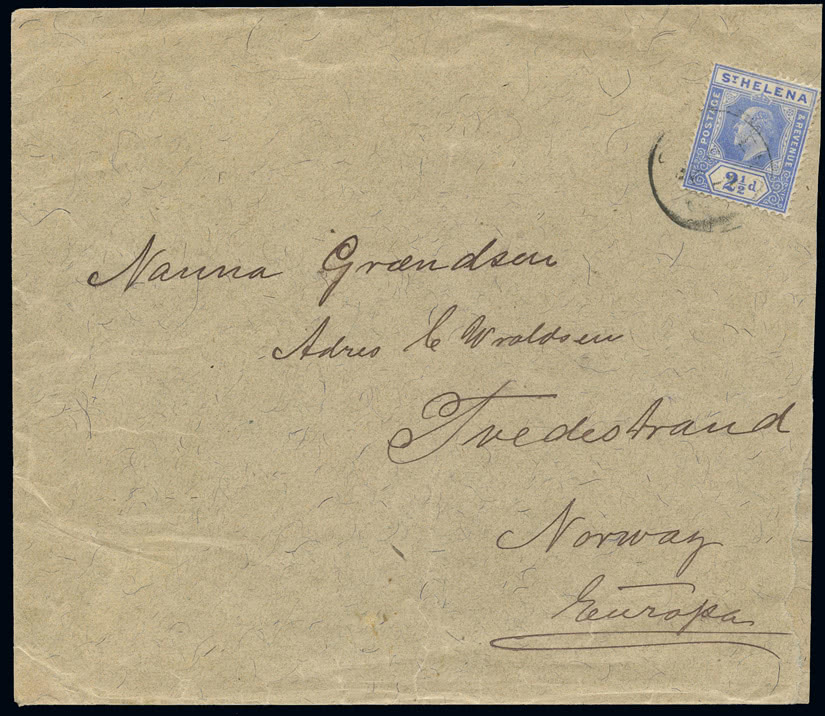 ST HELENA
POSTAGE
& REVENUE
2½d
Nanna Grændsen
Adres C Wroldsen
Tvedestrand
Norway
Europa